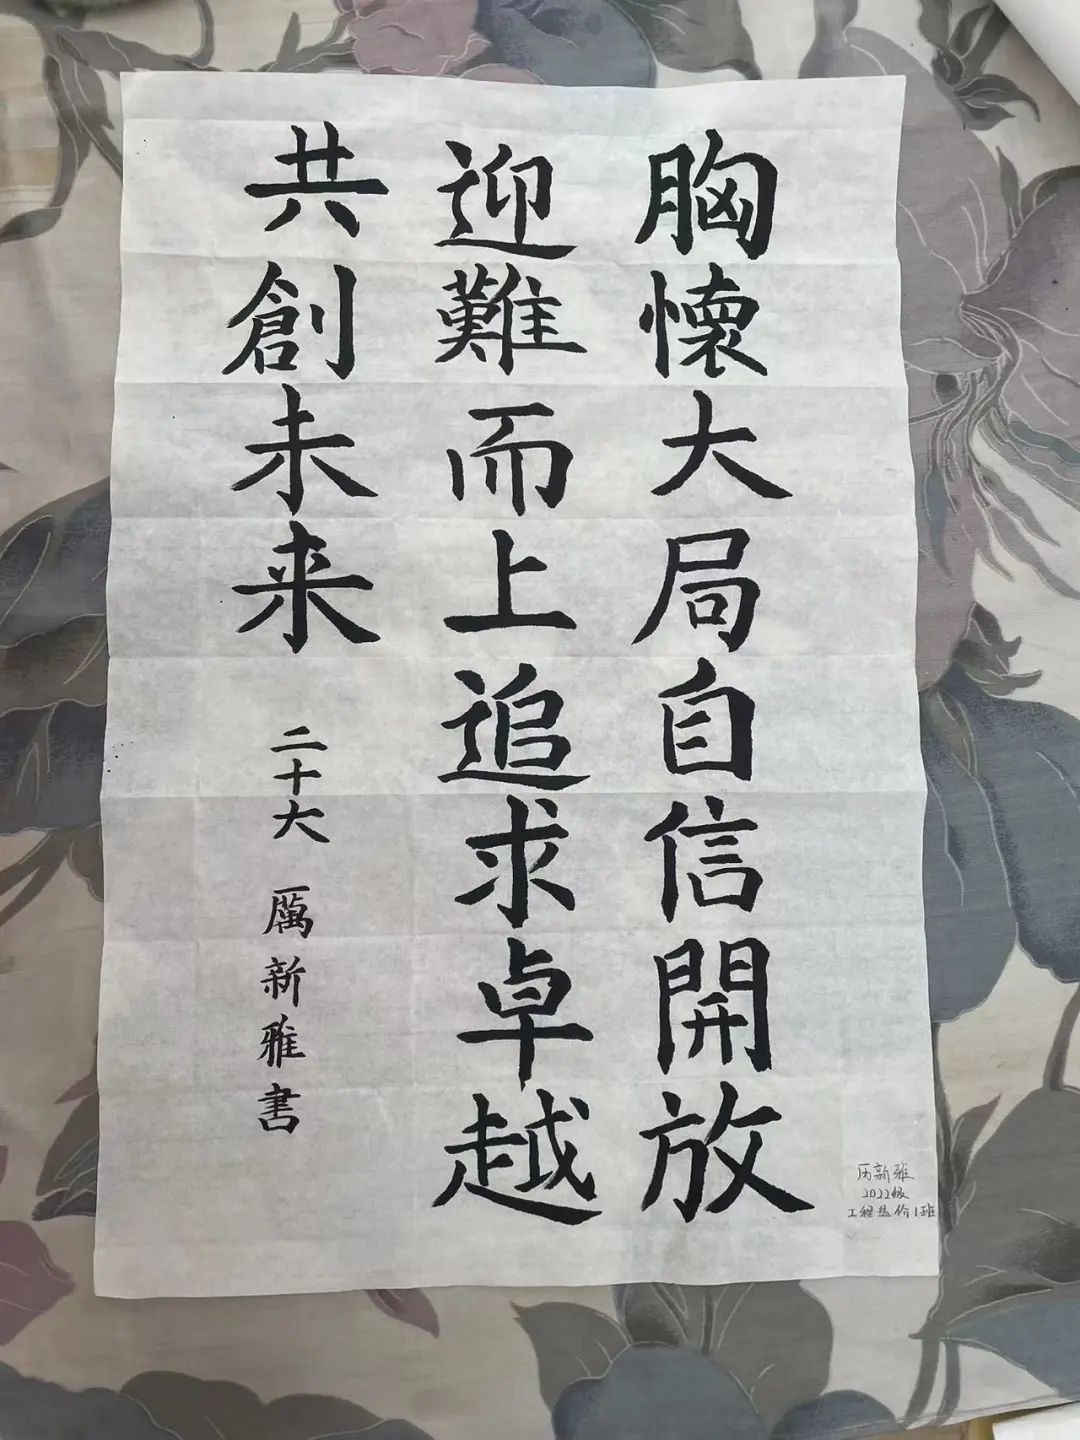 胸懷大局自信開放
迎難而上追求卓越
共創未来
二十大
厲新雅書
厉新雅
2022级
工程造价1班